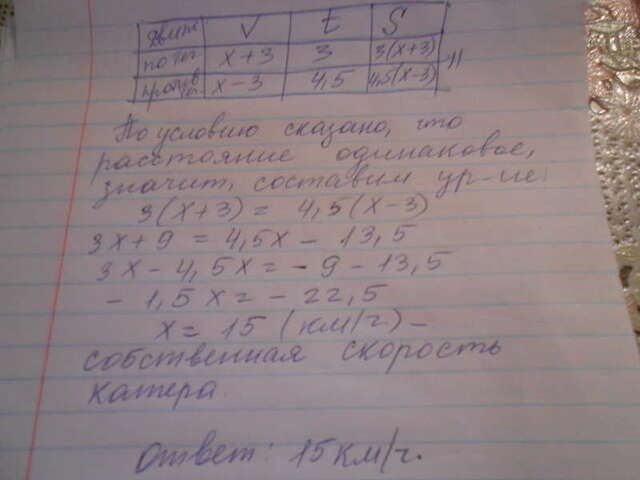 движ V t S
по теч x+3 3 3(x+3)
против x-3 4,5 4,5(x-3)
По условию сказано, что
расстояние одинаковое,
значит, составим ур-ие:
3(x+3) = 4,5(x-3)
3x+9 = 4,5x - 13,5
3x - 4,5x = - 9 - 13,5
- 1,5x = - 22,5
x = 15 (км/ч) -
собственная скорость
катера.
Ответ: 15 км/ч.